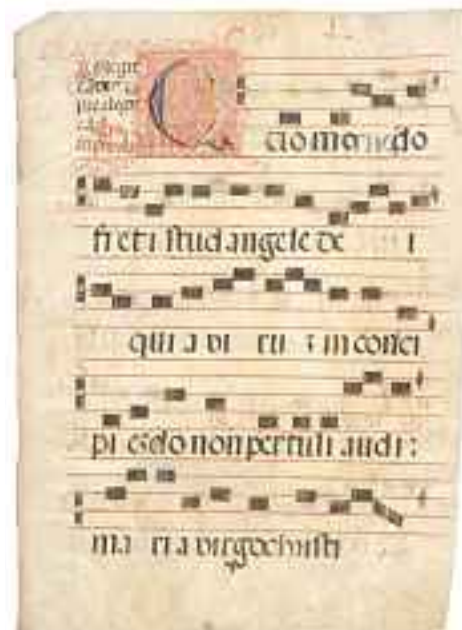 Quo mo do
fi et i stud angele de i
qui a vi ru in conci
pi endo non pertuli audi:
ma ri a virgo christi